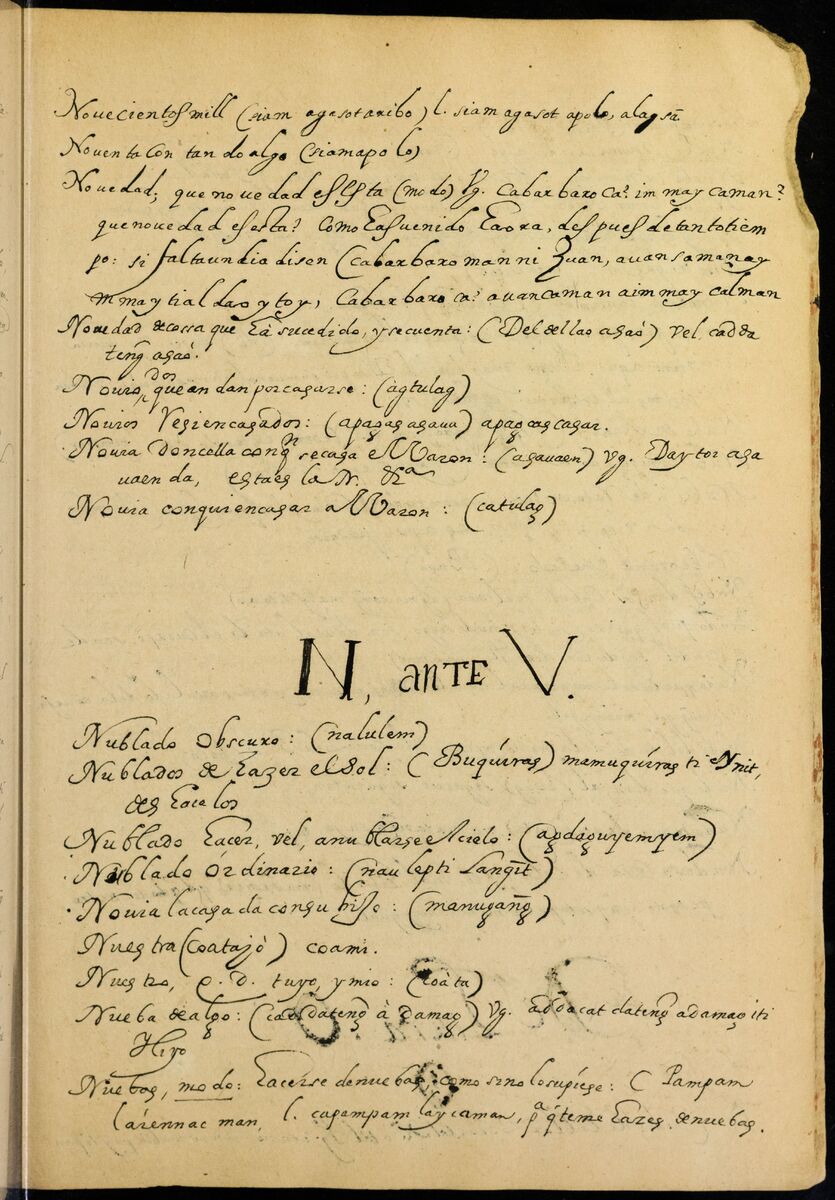 Novecientos mill (siam agasot aribo) l. siam agasot apolo, alagsã
Noventa contando algo (siamapolo)
Novedad; que novedad es Esta (modo) Vg. cabarbaro ca? im may caman?
que novedad es esta? como Eas venido Eaora, des pues de tanto tiem
po: si falta un dia disen (cabarbaro man ni Juan, auan saman ay
immay ti aldao ytoy, cabarbaro ca? auan caman aim may calman
Novedad de cossa que Eà sucedido, y se cuenta: (Deldellao asaó) vel, cadda
teng̃ asaó.
Novios, dos que andan por casarse: (agtulag)
Novios Resien casados: (apagas asaua) apagcascasar.
Novia Doncella con qn se casa el Varon: (asauaen) vg. Daytoy asa
uaenda, esta es la N. &a
Novia con quien casar a Varon: (catulag)
N, ante V.
Nublado Obscuro: (nalulem)
Nublados de Eazer el Sol: (Buquíras) mamuquíras ti Nnit,
des Eacelos
Nublado Eacer, vel, anublarse el cielo: (agdaguyemyem)
Nublado Órdinario: (naulep ti Langit)
Novia la casada con su hijo: (manugang̃)
Nuestra (coatajò) coami.
Nuestro, e. d. tuyo, y mio: (coàta)
Nueba de algo: (cad dateng̃ à damag) Vg. addacat dateng̃ a damag iti
Hijo
Nuebas, modo: Eacerse de nuebas, como si no lo supiese: (Pampam
laíennac man, l. capampamlaycaman, pa q̃ teme Eazes de nuebas.